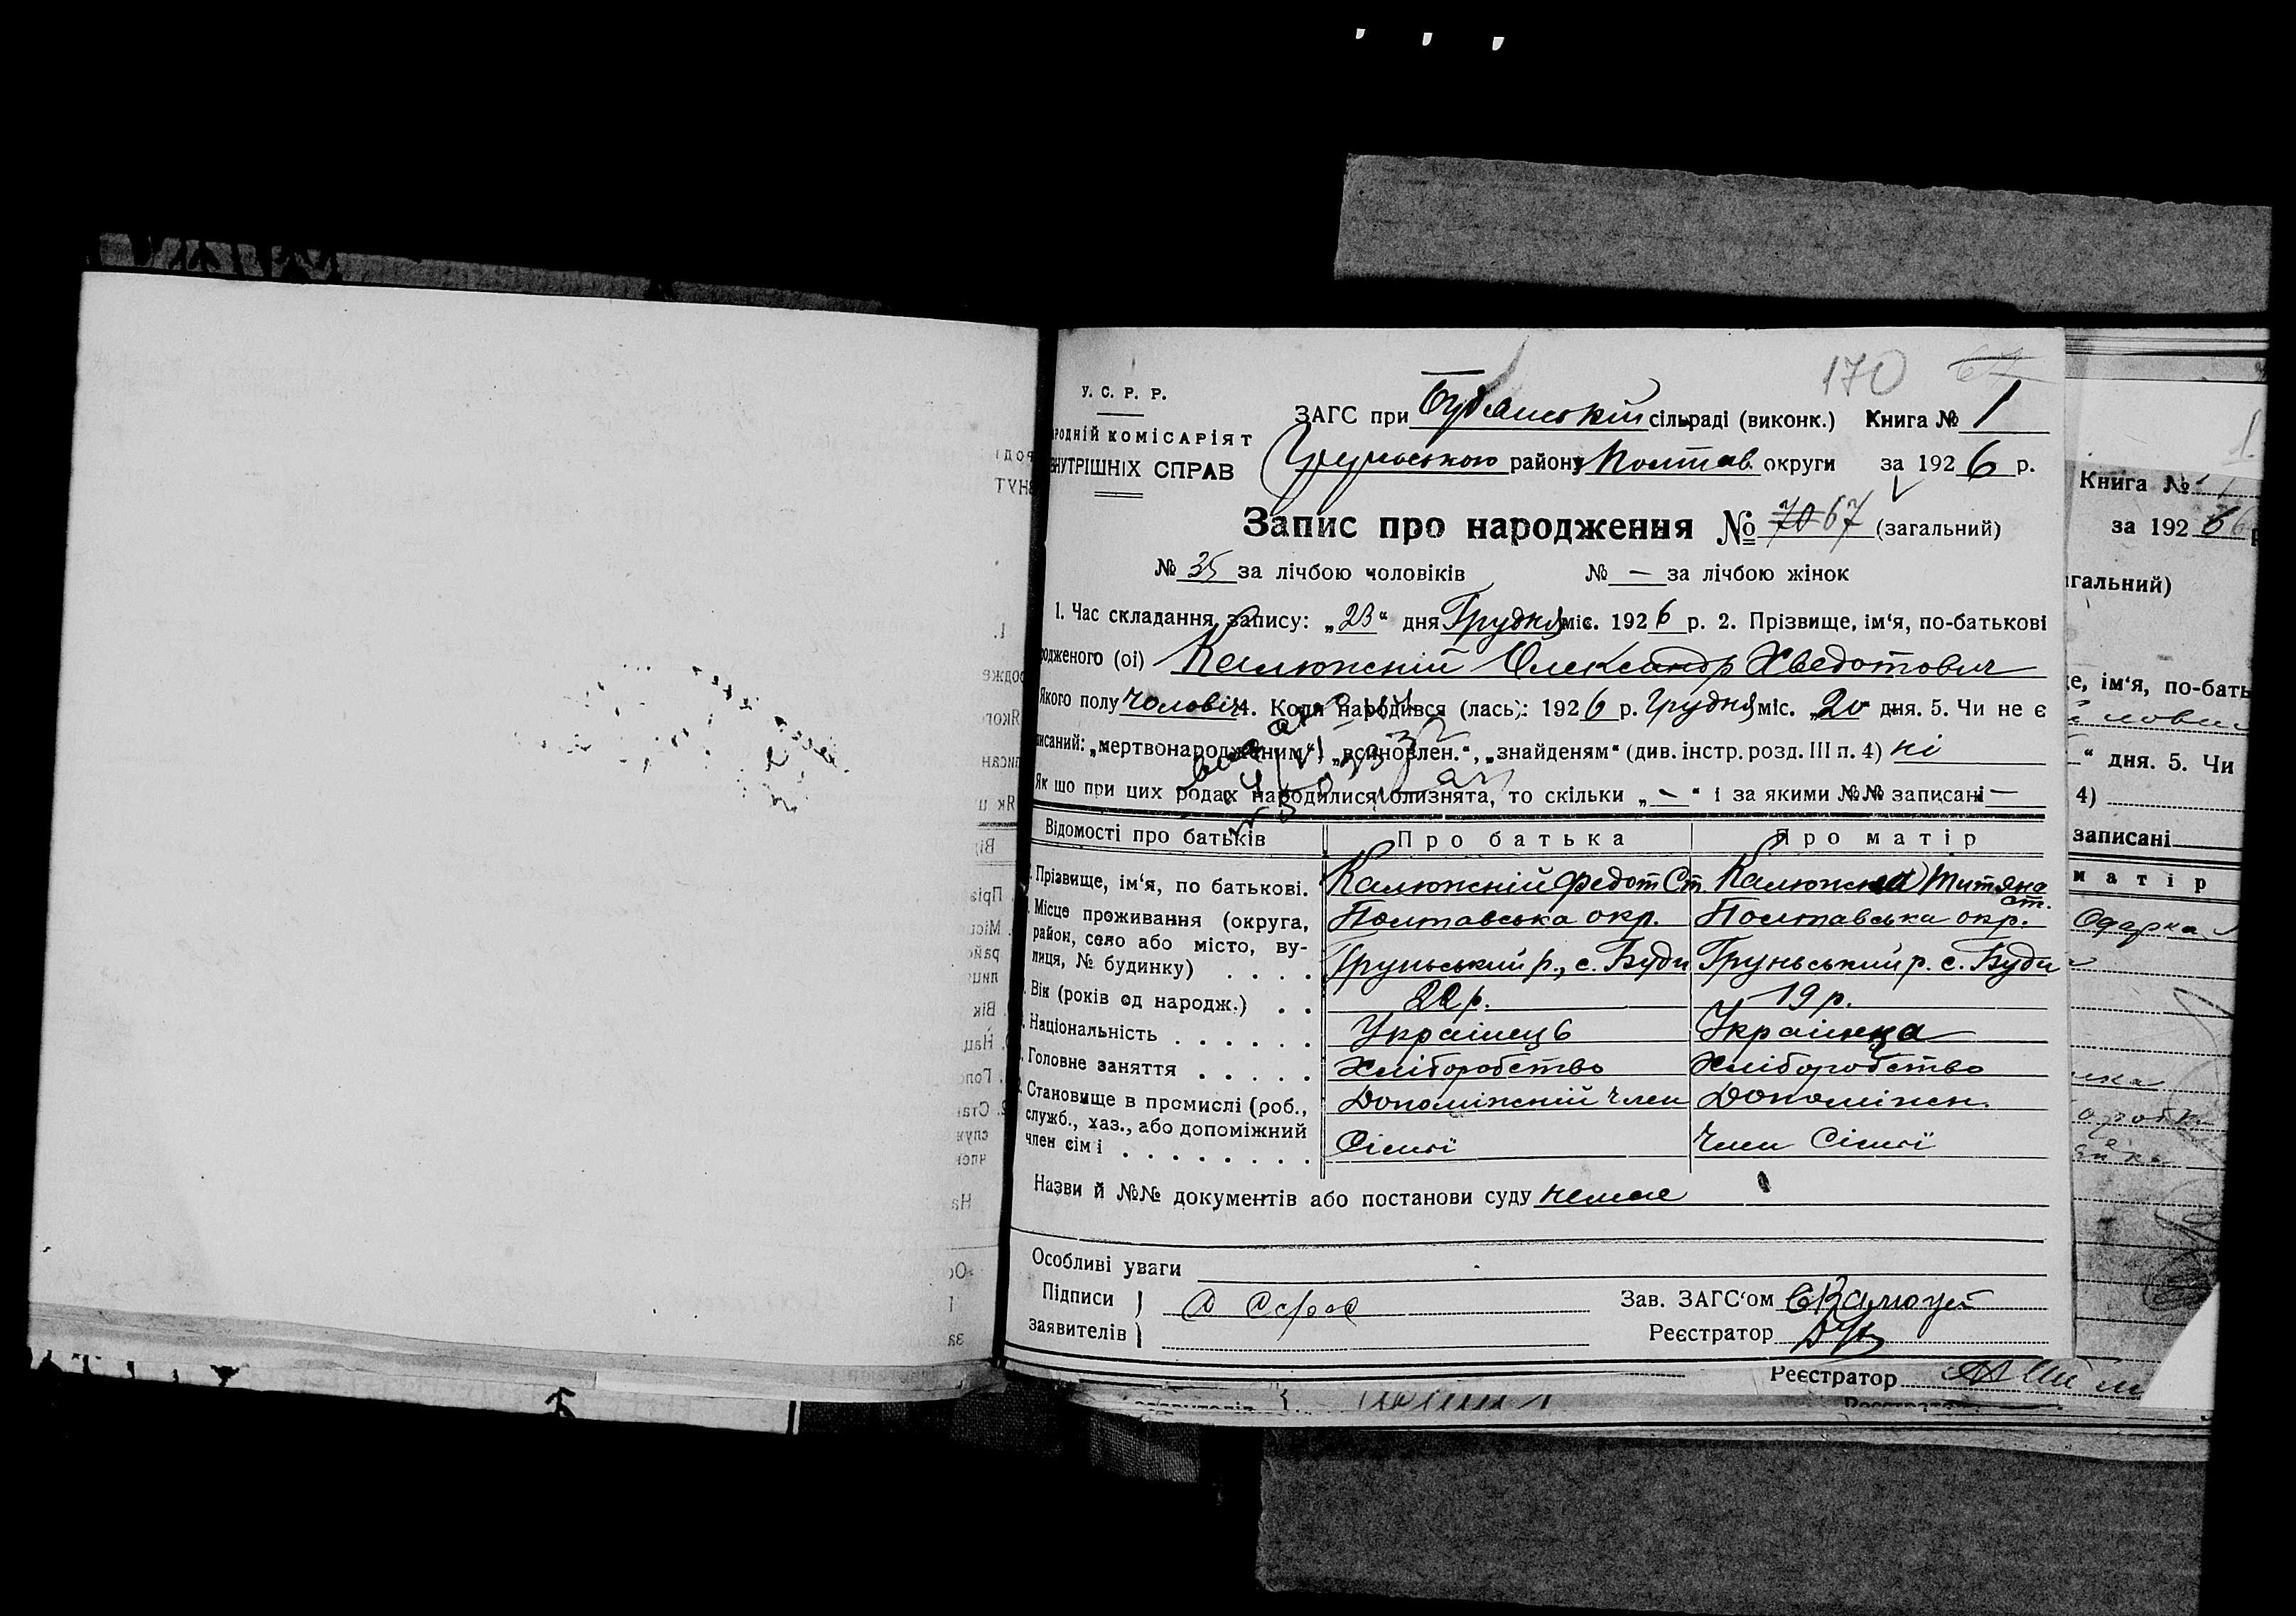 170 67
У. С. Р. Р.
ЗАГС при Будянській сільраді (виконк.) Книга № 1
РОДНІЙ КОМІСАРІЯТ
НУТРІШНІХ СПРАВ
Груньського району Полтав. округи за 1926 р.
Запис про народження № 70 67 (загальний)
№ 35 за лічбою чоловіків № — за лічбою жінок
1. Час складання запису: „23“ дня Грудня міс. 1926 р. 2. Прізвище, ім‘я, по-батькові
родженого (ої) Калюжній Олександр Хведотович
Якого полу чоловіч. 4. Коли народився (лась): 1926 р. Грудня міс. „20“ дня. 5. Чи не є
писаний: „мертвонародженим“, „всиновлен.“, „знайденям“ (див. інстр. розд. III п. 4) ні
Як що при цих родах народилися близнята, то скільки „—“ і за якими №№ записані —
Відомості про батьків Про батька Про матір
Прізвище, ім‘я, по батькові. Калюжній Федот Ст. Калюжна Титяна Ст.
Місце проживання (округа, район, село або місто, вулиця, № будинку) Полтавська окр. Полтавська окр.
Груньський р., с. Буди Груньський р. с. Буди
Вік (років од народж.) 22 р. 19 р.
Національність Украінець Украінка
Головне заняття Хліборобство Хліборобство
Становище в промислі (роб., служб., хаз., або допоміжний член сім‘ї Допоміжній член Допоміжн.
Сімї член Сімї
Назви й №№ документів або постанови суду немає
Особливі уваги
Підписи
заявителів
Зав. ЗАГС‘ом
Реєстратор
Книга № 1
за 1926 р
гальний)
е, ім‘я, по-бать
“ дня. 5. Чи
4)
записані
матір
Одарка
Реєстратор